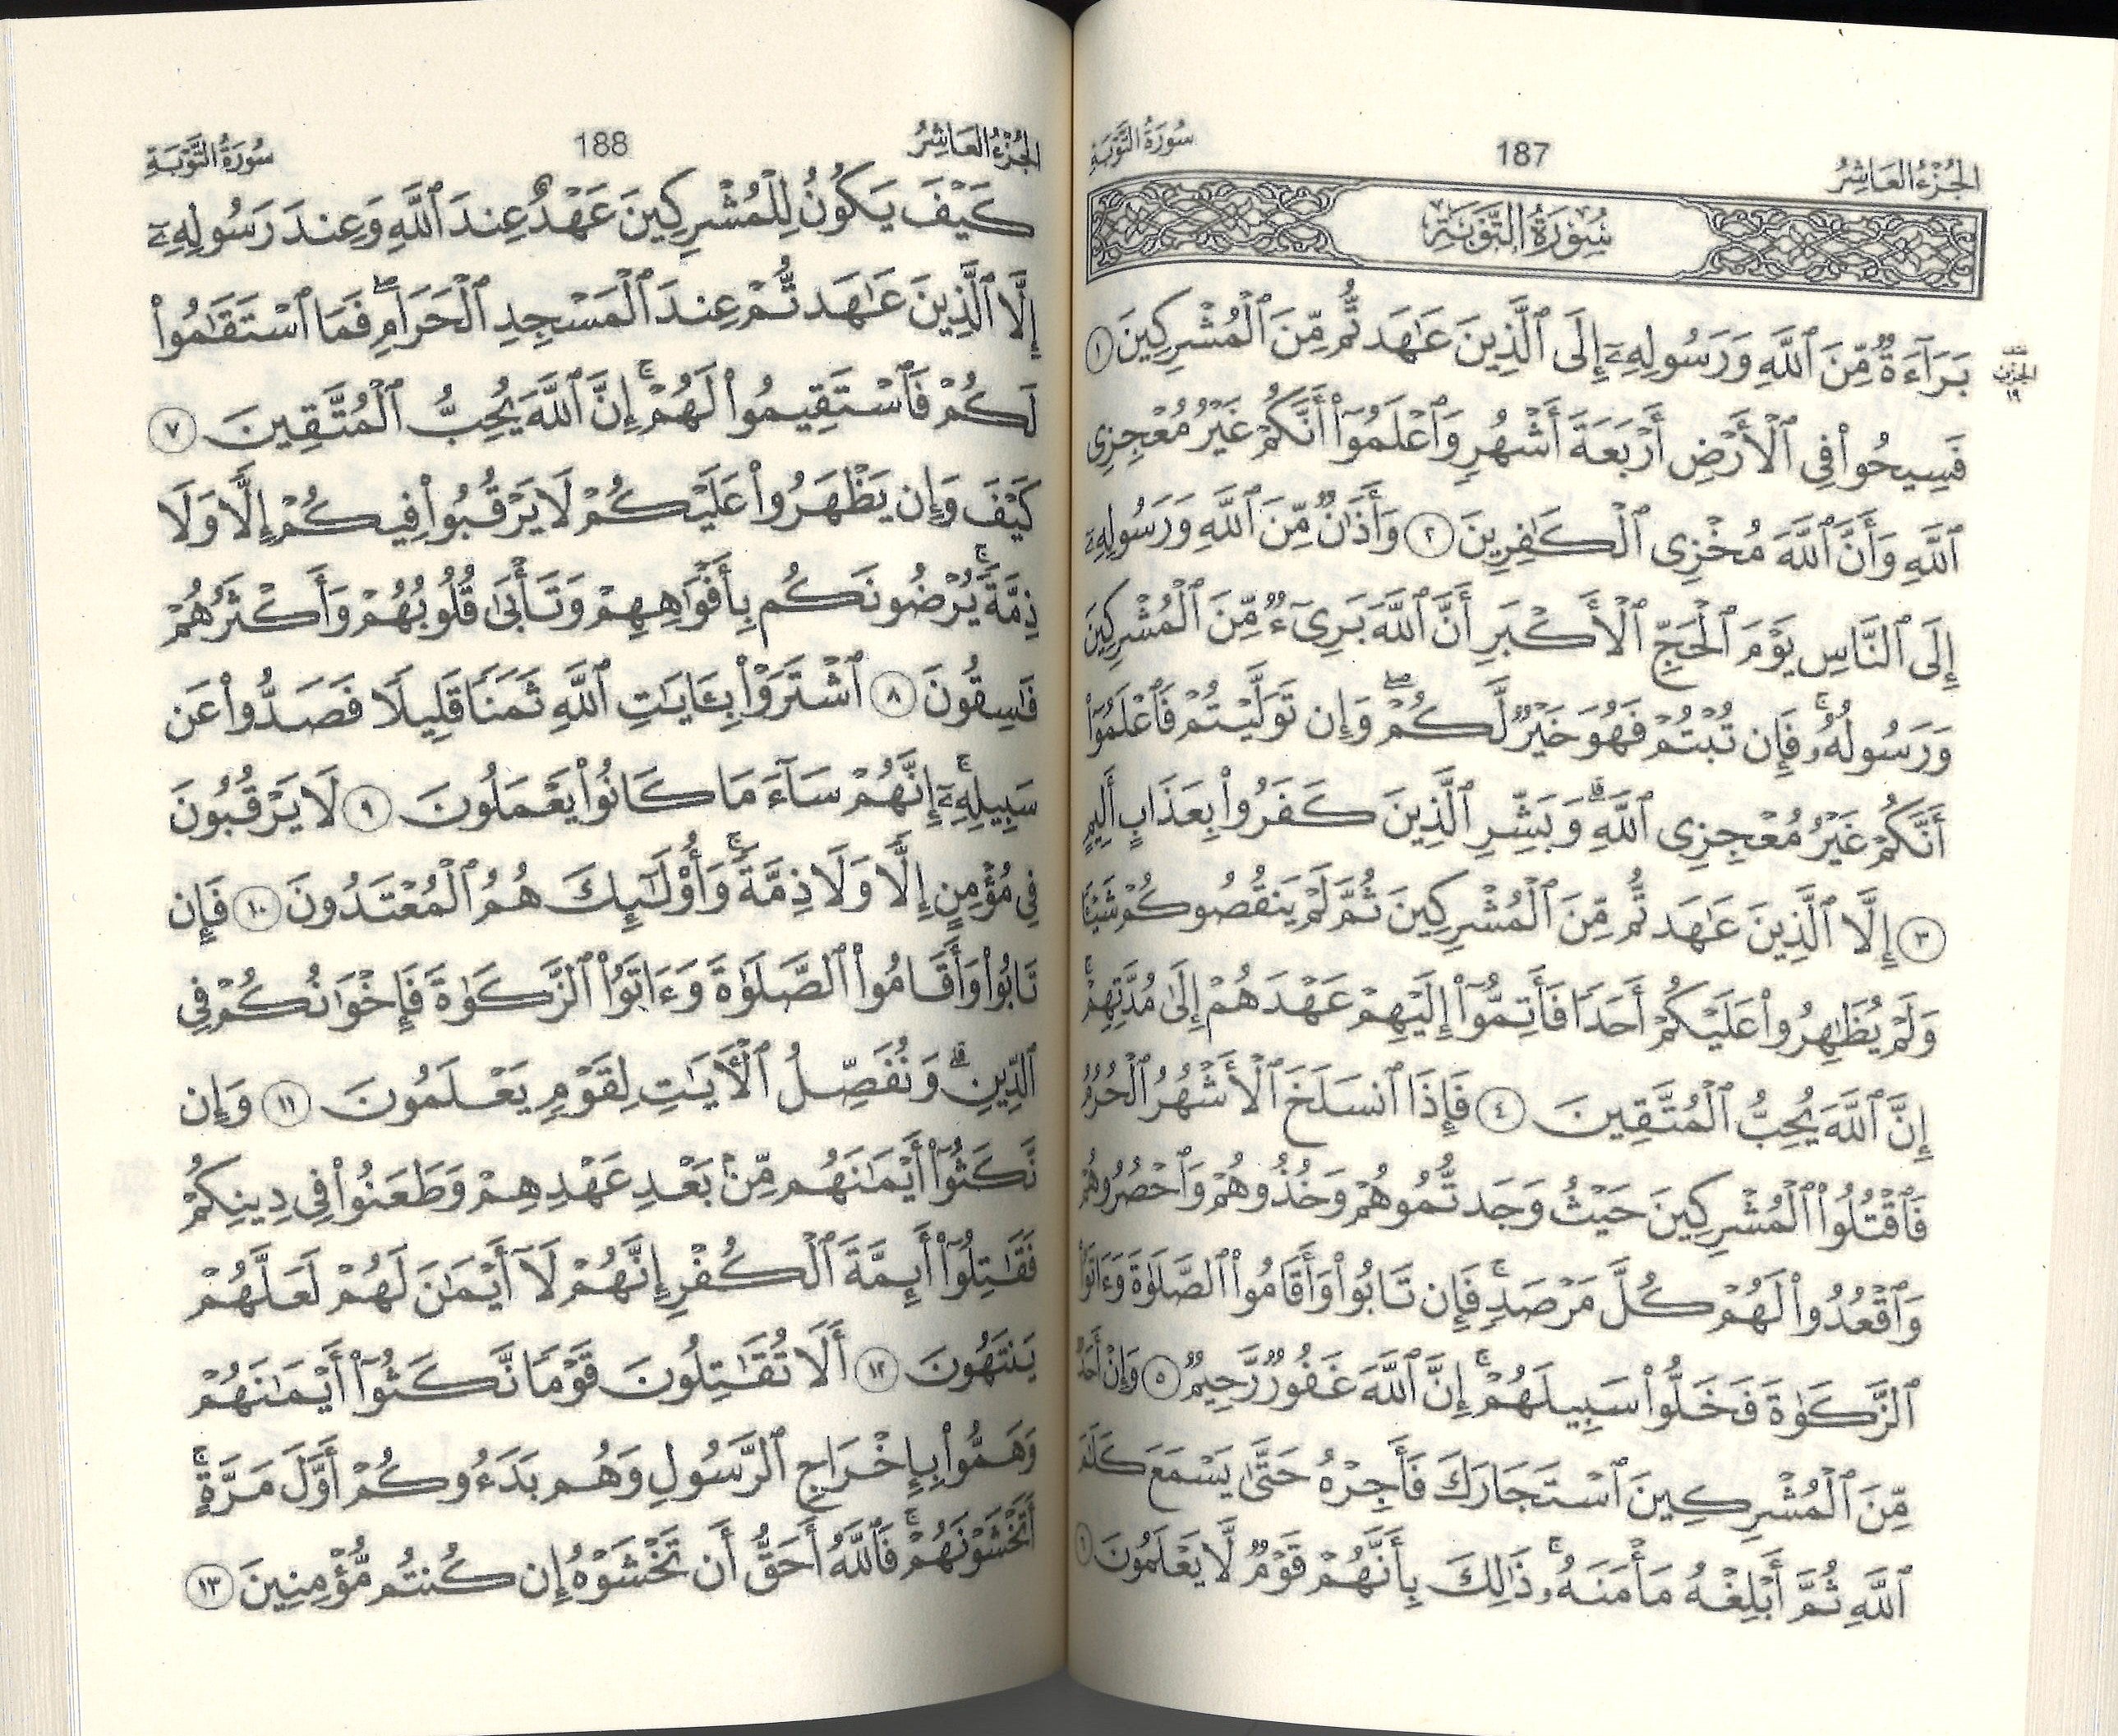 الجزء العاشر
187
سورة التوبة
سُورَةُ التَّوبَةِ
بَرَآءَةٌ مِّنَ ٱللَّهِ وَرَسُولِهِۦٓ إِلَى ٱلَّذِينَ عَٰهَدتُّم مِّنَ ٱلْمُشْرِكِينَ ١
الحزب ١٩
فَسِيحُوا۟ فِى ٱلْأَرْضِ أَرْبَعَةَ أَشْهُرٍ وَٱعْلَمُوٓا۟ أَنَّكُمْ غَيْرُ مُعْجِزِى
ٱللَّهِ وَأَنَّ ٱللَّهَ مُخْزِى ٱلْكَٰفِرِينَ ٢ وَأَذَٰنٌ مِّنَ ٱللَّهِ وَرَسُولِهِۦٓ
إِلَى ٱلنَّاسِ يَوْمَ ٱلْحَجِّ ٱلْأَكْبَرِ أَنَّ ٱللَّهَ بَرِىٓءٌ مِّنَ ٱلْمُشْرِكِينَ
وَرَسُولُهُۥ ۚ فَإِن تُبْتُمْ فَهُوَ خَيْرٌ لَّكُمْ ۖ وَإِن تَوَلَّيْتُمْ فَٱعْلَمُوٓا۟
أَنَّكُمْ غَيْرُ مُعْجِزِى ٱللَّهِ ۗ وَبَشِّرِ ٱلَّذِينَ كَفَرُوا۟ بِعَذَابٍ أَلِيمٍ
٣ إِلَّا ٱلَّذِينَ عَٰهَدتُّم مِّنَ ٱلْمُشْرِكِينَ ثُمَّ لَمْ يَنقُصُوكُمْ شَيْـًٔا
وَلَمْ يُظَٰهِرُوا۟ عَلَيْكُمْ أَحَدًا فَأَتِمُّوٓا۟ إِلَيْهِمْ عَهْدَهُمْ إِلَىٰ مُدَّتِهِمْ ۚ
إِنَّ ٱللَّهَ يُحِبُّ ٱلْمُتَّقِينَ ٤ فَإِذَا ٱنسَلَخَ ٱلْأَشْهُرُ ٱلْحُرُمُ
فَٱقْتُلُوا۟ ٱلْمُشْرِكِينَ حَيْثُ وَجَدتُّمُوهُمْ وَخُذُوهُمْ وَٱحْصُرُوهُمْ
وَٱقْعُدُوا۟ لَهُمْ كُلَّ مَرْصَدٍ ۚ فَإِن تَابُوا۟ وَأَقَامُوا۟ ٱلصَّلَوٰةَ وَءَاتَوُا۟
ٱلزَّكَوٰةَ فَخَلُّوا۟ سَبِيلَهُمْ ۚ إِنَّ ٱللَّهَ غَفُورٌ رَّحِيمٌ ٥ وَإِنْ أَحَدٌ
مِّنَ ٱلْمُشْرِكِينَ ٱسْتَجَارَكَ فَأَجِرْهُ حَتَّىٰ يَسْمَعَ كَلَٰمَ
ٱللَّهِ ثُمَّ أَبْلِغْهُ مَأْمَنَهُۥ ۚ ذَٰلِكَ بِأَنَّهُمْ قَوْمٌ لَّا يَعْلَمُونَ ٦
الجزء العاشر
188
سورة التوبة
كَيْفَ يَكُونُ لِلْمُشْرِكِينَ عَهْدٌ عِندَ ٱللَّهِ وَعِندَ رَسُولِهِۦٓ
إِلَّا ٱلَّذِينَ عَٰهَدتُّمْ عِندَ ٱلْمَسْجِدِ ٱلْحَرَامِ ۖ فَمَا ٱسْتَقَٰمُوا۟
لَكُمْ فَٱسْتَقِيمُوا۟ لَهُمْ ۚ إِنَّ ٱللَّهَ يُحِبُّ ٱلْمُتَّقِينَ ٧
كَيْفَ وَإِن يَظْهَرُوا۟ عَلَيْكُمْ لَا يَرْقُبُوا۟ فِيكُمْ إِلًّا وَلَا
ذِمَّةً ۚ يُرْضُونَكُم بِأَفْوَٰهِهِمْ وَتَأْبَىٰ قُلُوبُهُمْ وَأَكْثَرُهُمْ
فَٰسِقُونَ ٨ ٱشْتَرَوْا۟ بِـَٔايَٰتِ ٱللَّهِ ثَمَنًا قَلِيلًا فَصَدُّوا۟ عَن
سَبِيلِهِۦٓ ۚ إِنَّهُمْ سَآءَ مَا كَانُوا۟ يَعْمَلُونَ ٩ لَا يَرْقُبُونَ
فِى مُؤْمِنٍ إِلًّا وَلَا ذِمَّةً ۚ وَأُو۟لَٰٓئِكَ هُمُ ٱلْمُعْتَدُونَ ١٠ فَإِن
تَابُوا۟ وَأَقَامُوا۟ ٱلصَّلَوٰةَ وَءَاتَوُا۟ ٱلزَّكَوٰةَ فَإِخْوَٰنُكُمْ فِى
ٱلدِّينِ ۗ وَنُفَصِّلُ ٱلْأَيَٰتِ لِقَوْمٍ يَعْلَمُونَ ١١ وَإِن
نَّكَثُوٓا۟ أَيْمَٰنَهُم مِّنۢ بَعْدِ عَهْدِهِمْ وَطَعَنُوا۟ فِى دِينِكُمْ
فَقَٰتِلُوٓا۟ أَئِمَّةَ ٱلْكُفْرِ إِنَّهُمْ لَآ أَيْمَٰنَ لَهُمْ لَعَلَّهُمْ
يَنتَهُونَ ١٢ أَلَا تُقَٰتِلُونَ قَوْمًا نَّكَثُوٓا۟ أَيْمَٰنَهُمْ
وَهَمُّوا۟ بِإِخْرَاجِ ٱلرَّسُولِ وَهُم بَدَءُوكُمْ أَوَّلَ مَرَّةٍ ۚ
أَتَخْشَوْنَهُمْ ۚ فَٱللَّهُ أَحَقُّ أَن تَخْشَوْهُ إِن كُنتُم مُّؤْمِنِينَ ١٣